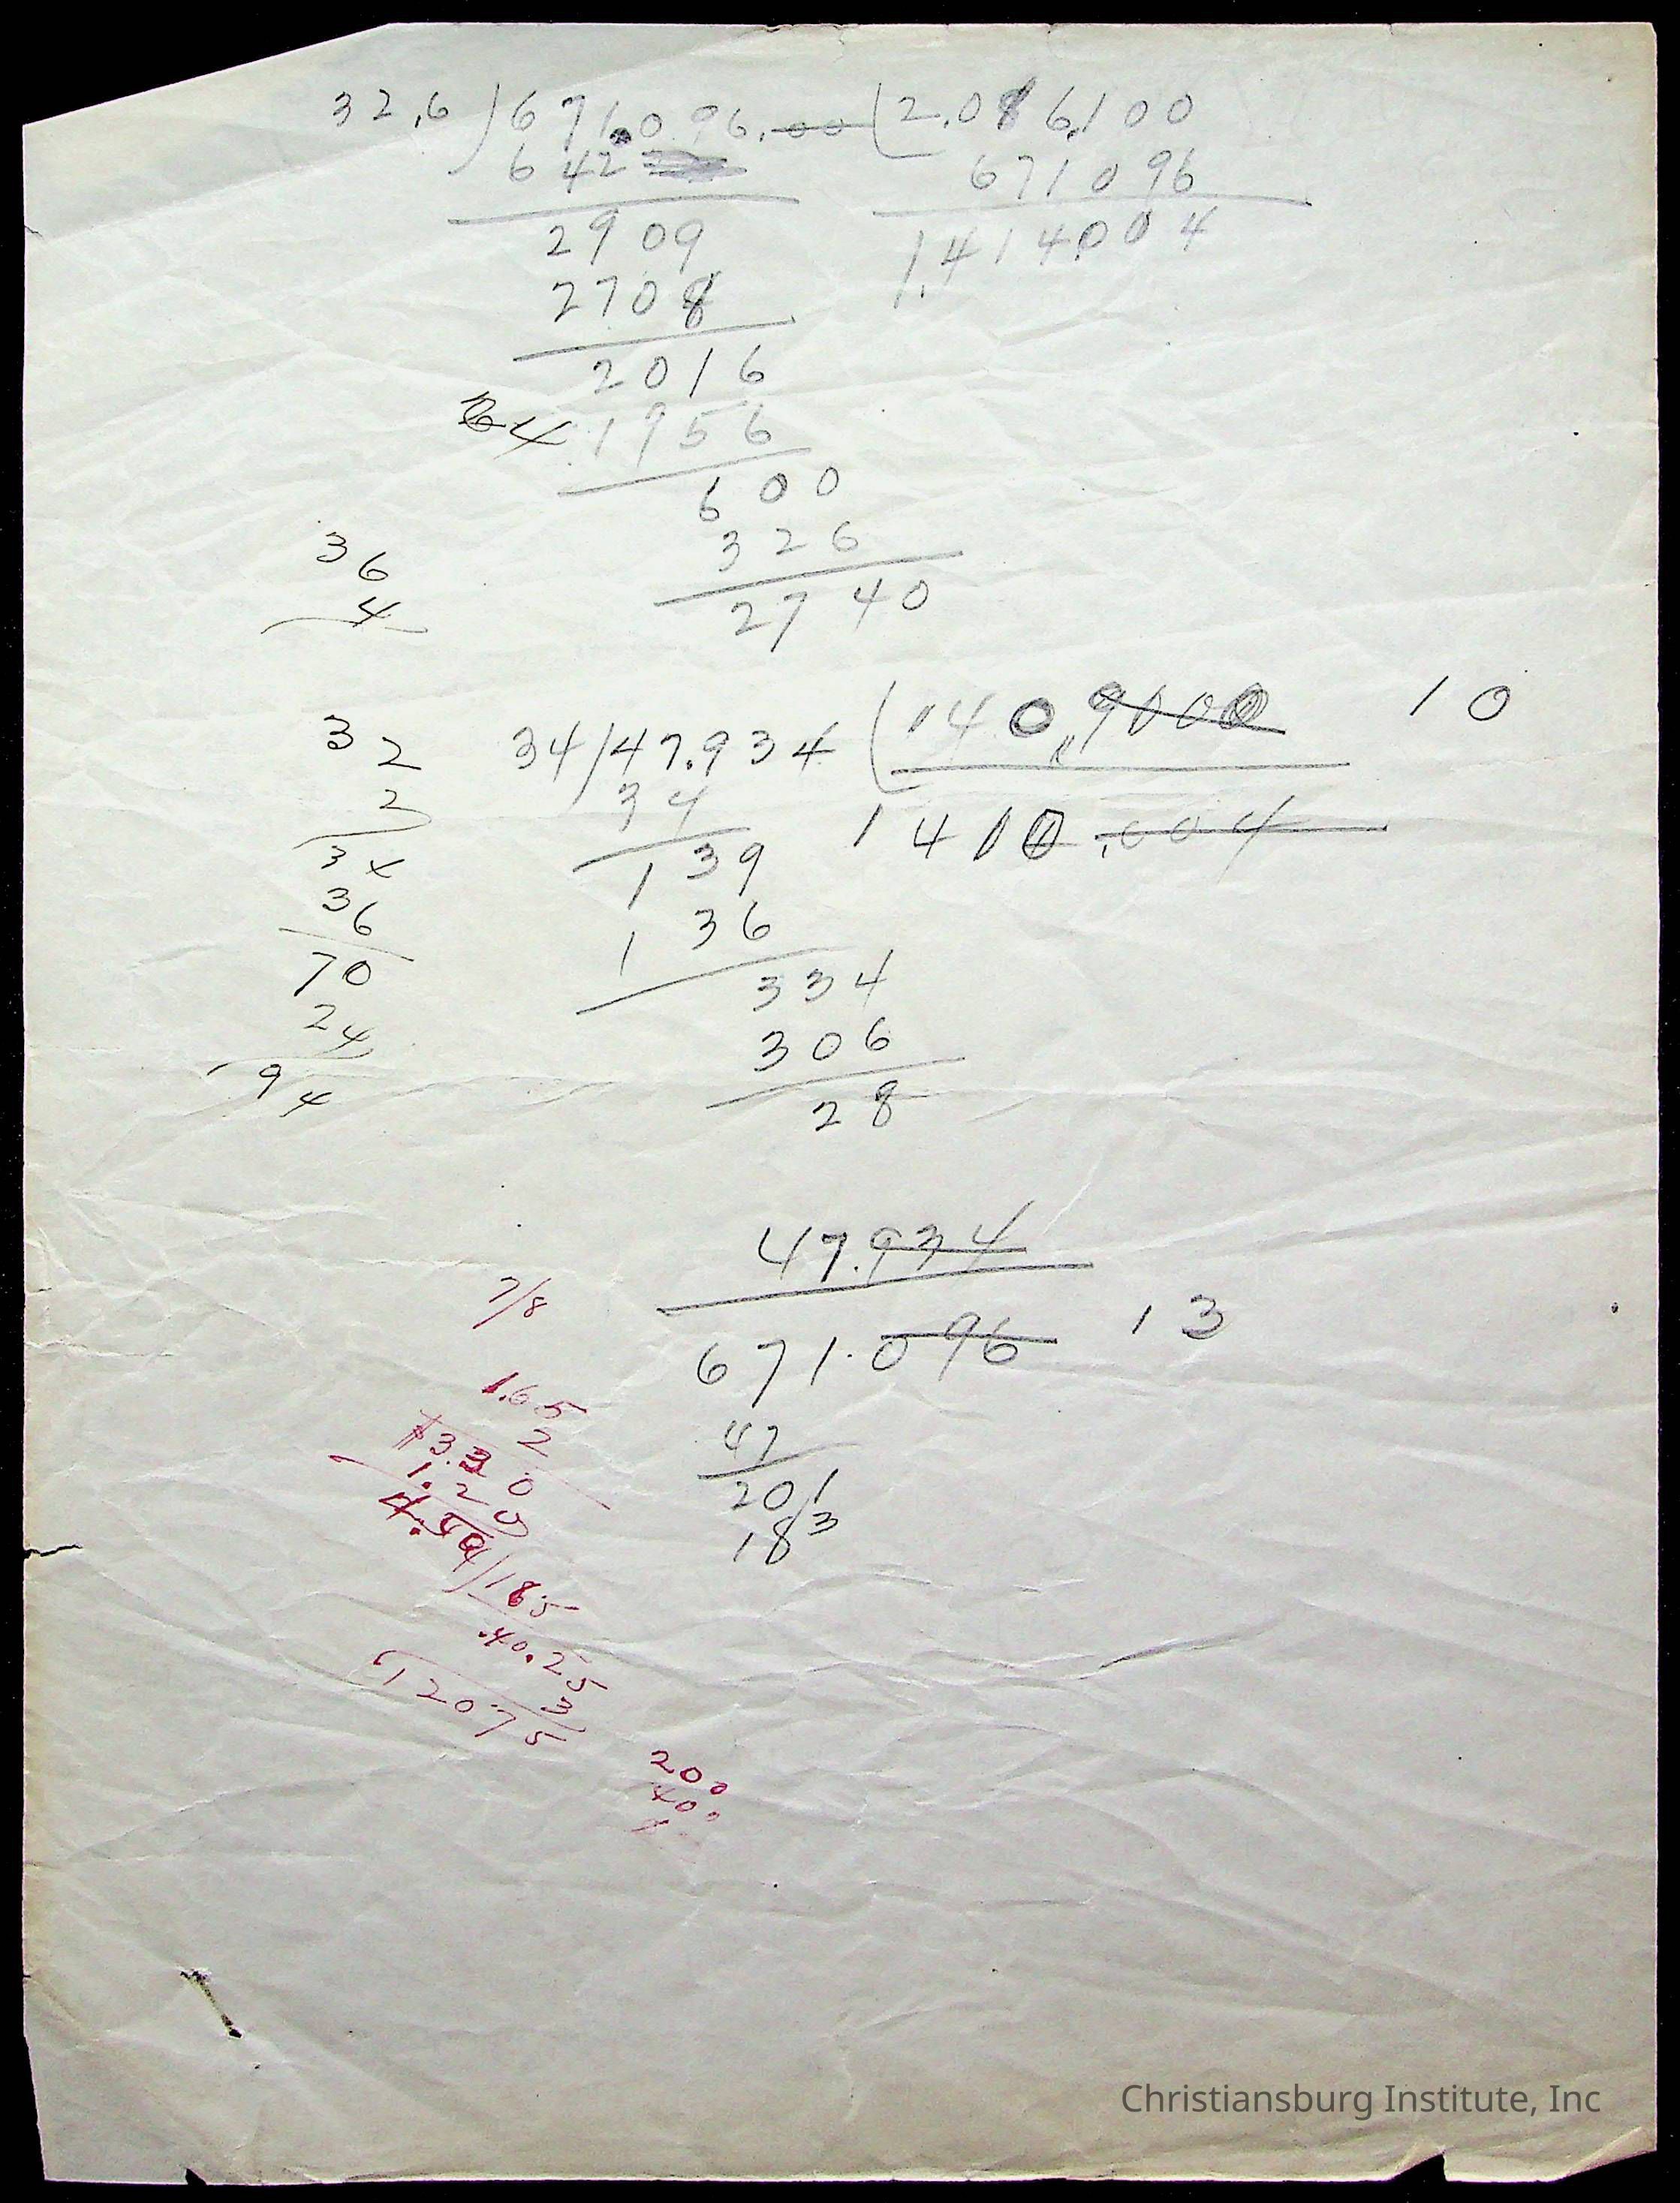 32.6 ) 671.096.00 ( 2.086.100
642
671096
2909
1.414.004
2708
2016
64 1956
600
326
2740
36
4
32
2
34
36
70
24
94
34 / 47.934 ( 140.9000 10
34
1410.004
139
136
334
306
28
47.934
671.096 13
47
201
183
7/8
1.65
2
$3.30
1.20
4.50
4/185
.40.25
3
120.75
200
400
Christiansburg Institute, Inc